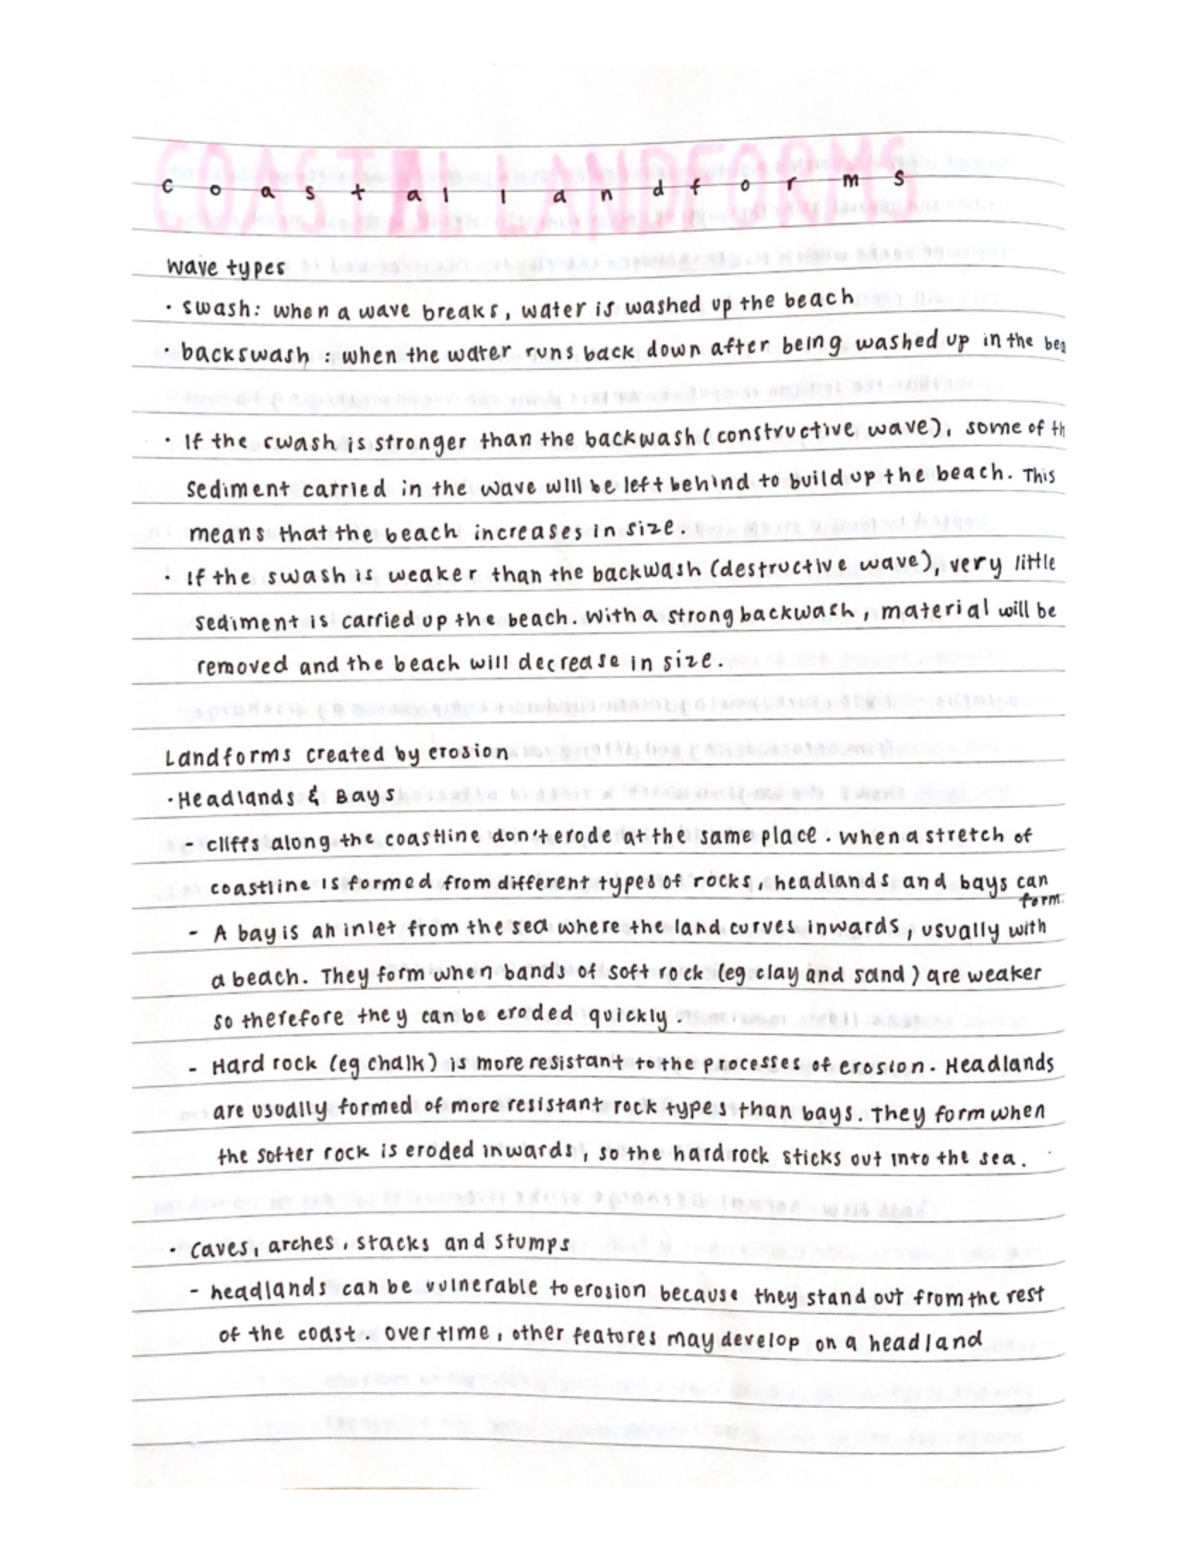 COASTAL LANDFORMS
coastal landforms
wave types
· swash: when a wave breaks, water is washed up the beach
· backswash : when the water runs back down after being washed up in the bea
· If the swash is stronger than the backwash (constructive wave), some of th
sediment carried in the wave will be left behind to build up the beach. This
means that the beach increases in size.
· If the swash is weaker than the backwash (destructive wave), very little
sediment is carried up the beach. With a strong backwash, material will be
removed and the beach will decrease in size.
Landforms created by erosion
· Headlands & Bays
- cliffs along the coastline don't erode at the same place. When a stretch of
coastline is formed from different types of rocks, headlands and bays can
form.
- A bay is an inlet from the sea where the land curves inwards, usually with
a beach. They form when bands of soft rock (eg clay and sand) are weaker
so therefore they can be eroded quickly.
- Hard rock (eg chalk) is more resistant to the processes of erosion. Headlands
are usually formed of more resistant rock types than bays. They form when
the softer rock is eroded inwards, so the hard rock sticks out into the sea.
· Caves, arches, stacks and stumps
- headlands can be vulnerable to erosion because they stand out from the rest
of the coast. Over time, other features may develop on a headland